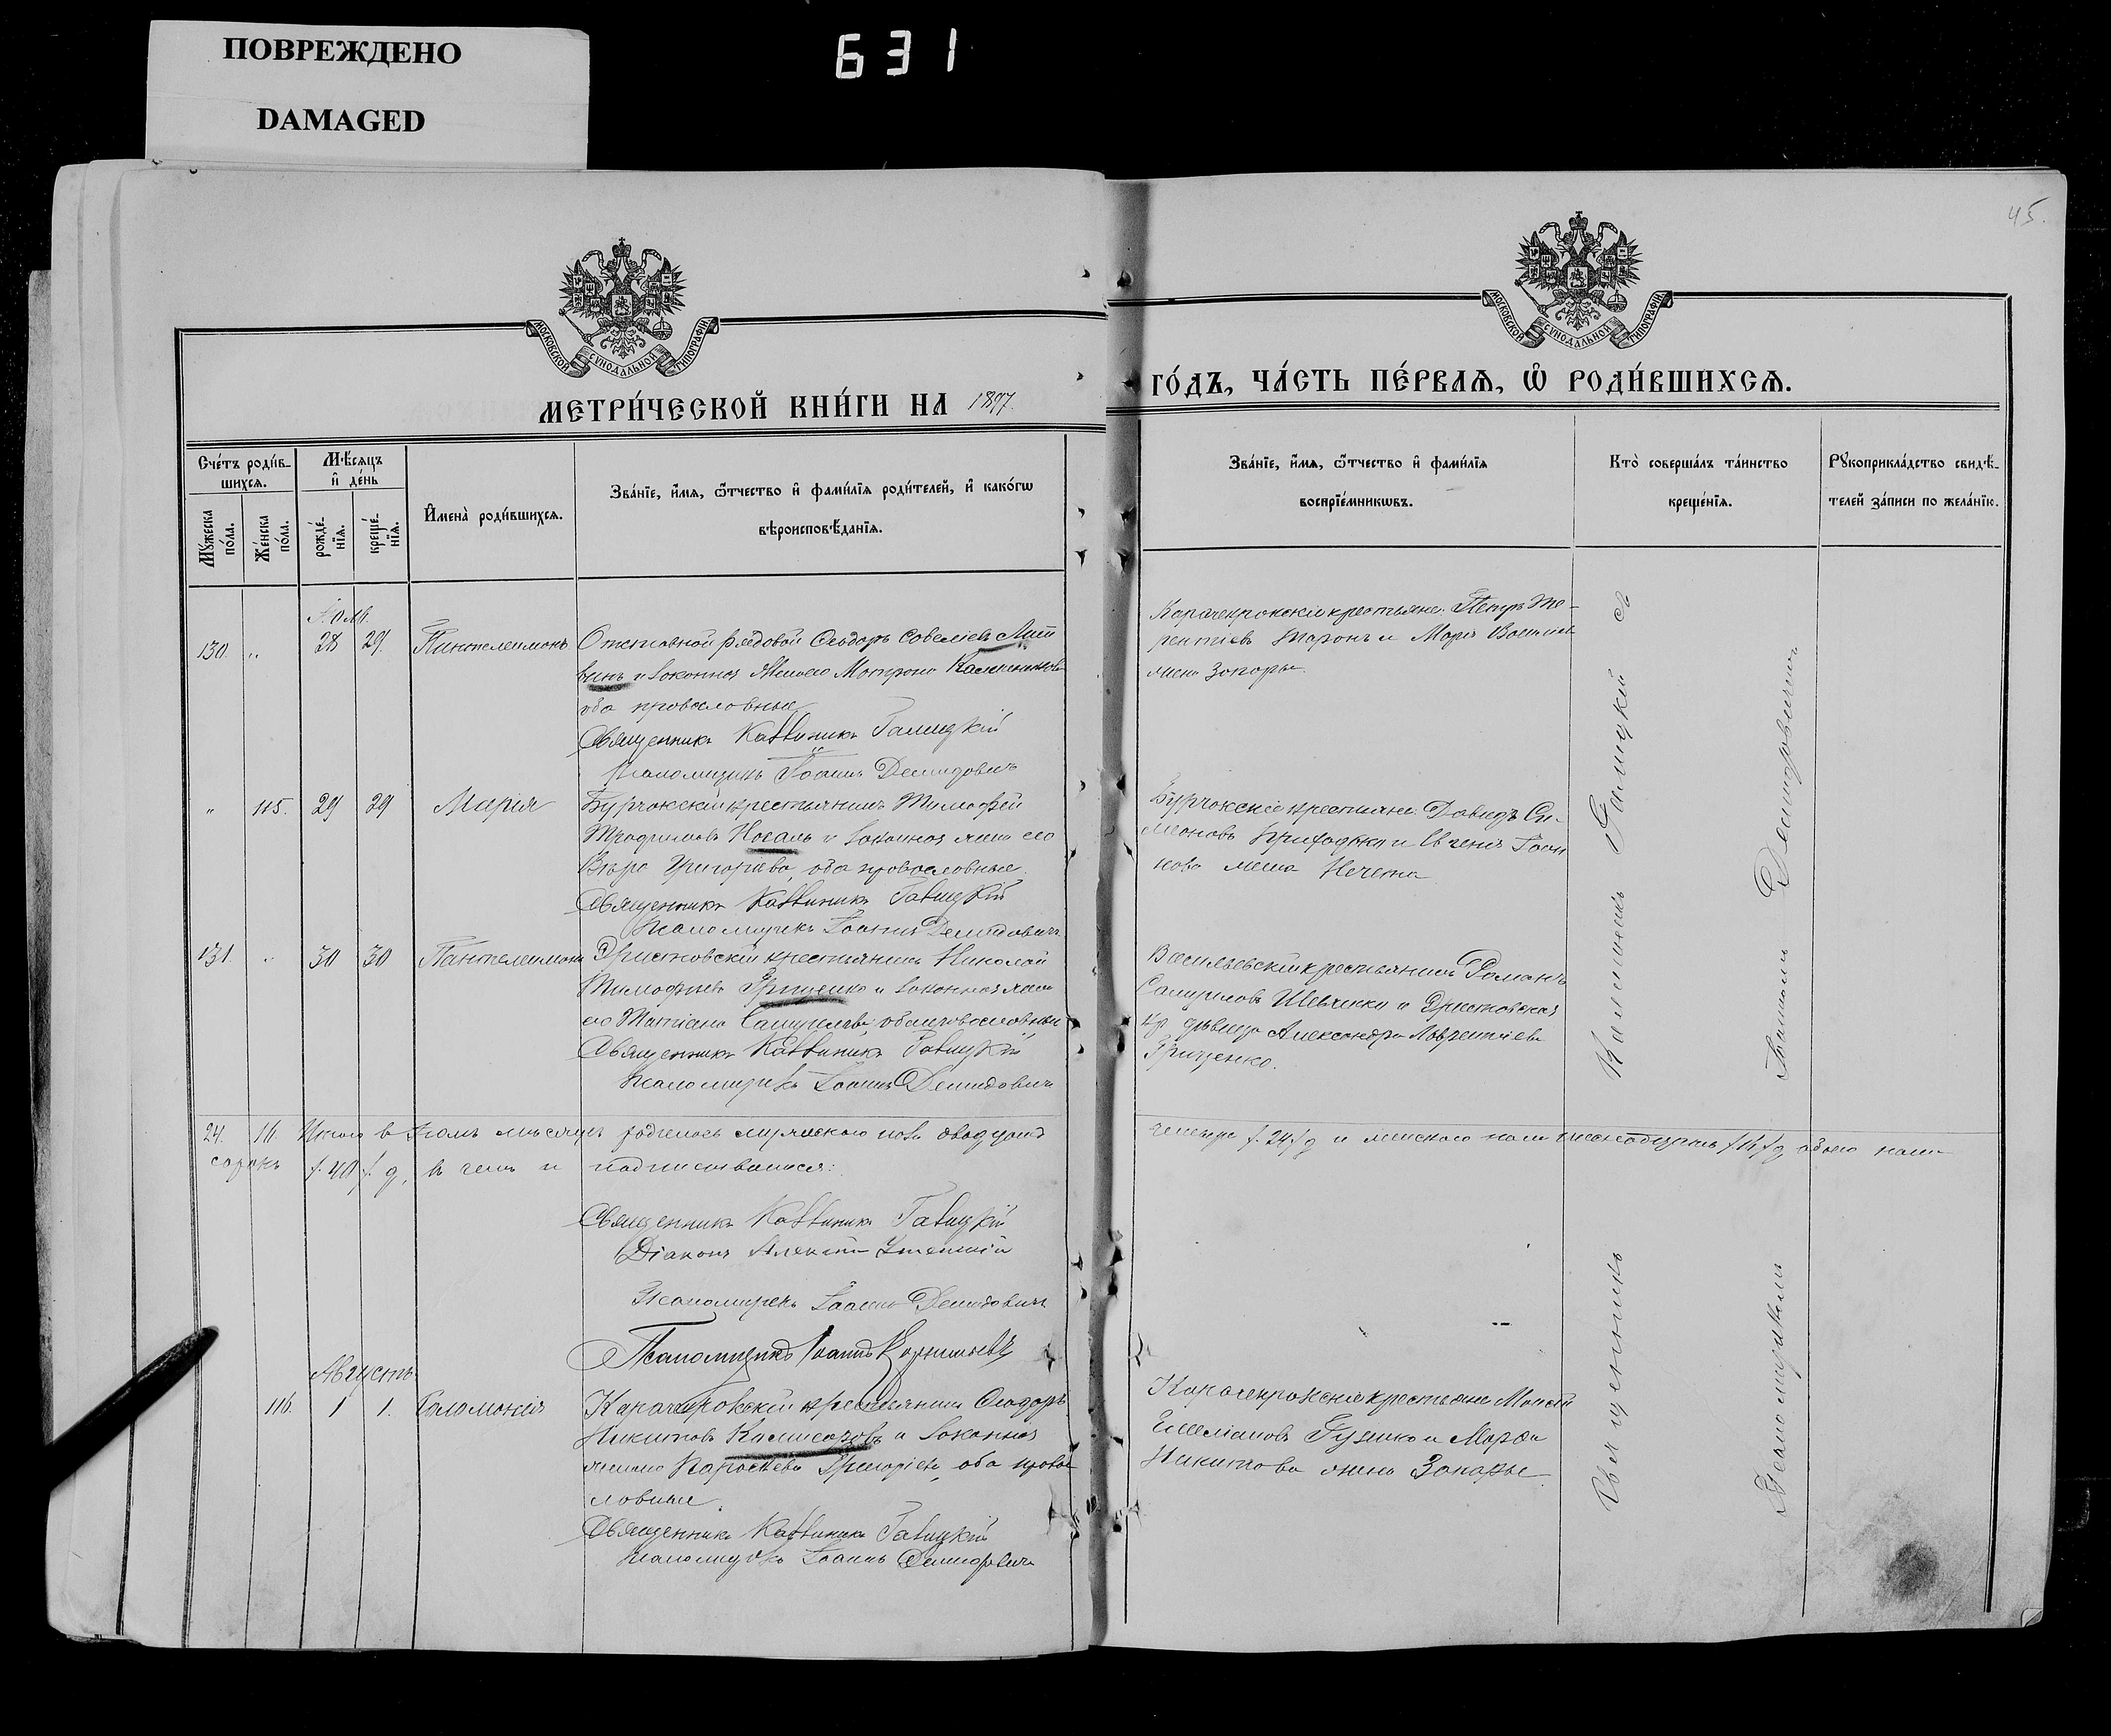 ПОВРЕЖДЕНО
DAMAGED
631
45.
МОСКОВСКОЙ СѴНОДАЛЬНОЙ ТИПОГРАФІИ
МОСКОВСКОЙ СѴНОДАЛЬНОЙ ТИПОГРАФІИ
МЕТРИ́ЧЕСКОЙ КНИ́ГИ НА 1897.
ГО́ДЪ, ЧА́СТЬ ПЕ́РВАѦ, Ѡ҆ РОДИ́ВШИХСѦ.
Сче́тъ роди́в-
шихсѧ.
Мꙋ́жеска по́ла.
Же́нска по́ла.
Мѣ́сѧцъ
и҆ де́нь
рожде́-нїѧ.
креще́-нїѧ.
И҆мена̀ роди́вшихсѧ.
Зва́нїе, и҆́мѧ, ѻ҆́тчество и҆ фами́лїѧ роди́телей, и҆ како́гѡ
вѣроисповѣ́данїѧ.
Зва́нїе, и҆́мѧ, ѻ҆́тчество и҆ фами́лїѧ
воспрїе́мникѡвъ.
Кто̀ соверша́лъ та́инство
креще́нїѧ.
Рꙋкоприкла́дство свидѣ́-
телей за́писи по жела́нїю.
130. „ 28 29. Пантелеимонъ Отставной рядовой Ѳеодоръ Савеліевъ
и законная жена его Матрона
оба православные
Священникъ Каллиникъ Галицкій
Псаломщикъ Іоаннъ Демидовичъ
Карачекрокскіе крестьяне: Петръ Те-
рентіевъ Таранъ и Марія
жена Запары
„ 115. 29 29 Марія Бурчокскій крестьянинъ Тимофей
Трофимовъ Носаль и законная жена его
Вѣра Григорьева, оба православные.
Священникъ Каллиникъ Галицкій
Псаломщикъ Іоаннъ Демидовичъ
Бурчокскіе крестьяне: Давидъ Си-
меоновъ Приходько и Іоан-
нова жена
131 „ 30 30 Пантелеимонъ крестьянинъ Николай
Тимофеевъ Грищенко и законная жена
его Татіана Самуилова, оба православные
Священникъ Каллиникъ Галицкій
Псаломщикъ Іоаннъ Демидовичъ
Васильевскій крестьянинъ Романъ
Самуиловъ Шевченко и
кр. дѣвица Александра Лаврентіева
Грищенко.
24. 16. Итого въ Іюлѣ мѣсяцѣ родилось мужескаго пола двадцать
четыре /24/ д. и женскаго пола шестнадцать /16/ д. обоего пола
сорокъ /40/ д, въ чемъ и подписываемся:
Священникъ Каллиникъ Галицкій
Діаконъ Алексій
Псаломщикъ Іоаннъ Демидовичъ
Псаломщикъ Іоаннъ
Августъ
116. 1 1. Соломонія Карачекрокскій крестьянинъ Ѳеодоръ
Никитовъ и законная
жена его Параскева Григоріева, оба право-
славные.
Священникъ Каллиникъ Галицкій
Псаломщикъ Іоаннъ Демидовичъ
Карачекрокскіе крестьяне Моисей
и Марфа
Никитова жена Запары
Священникъ Каллиникъ Галицкій съ
Псаломщикомъ Іоанномъ Демидовичемъ